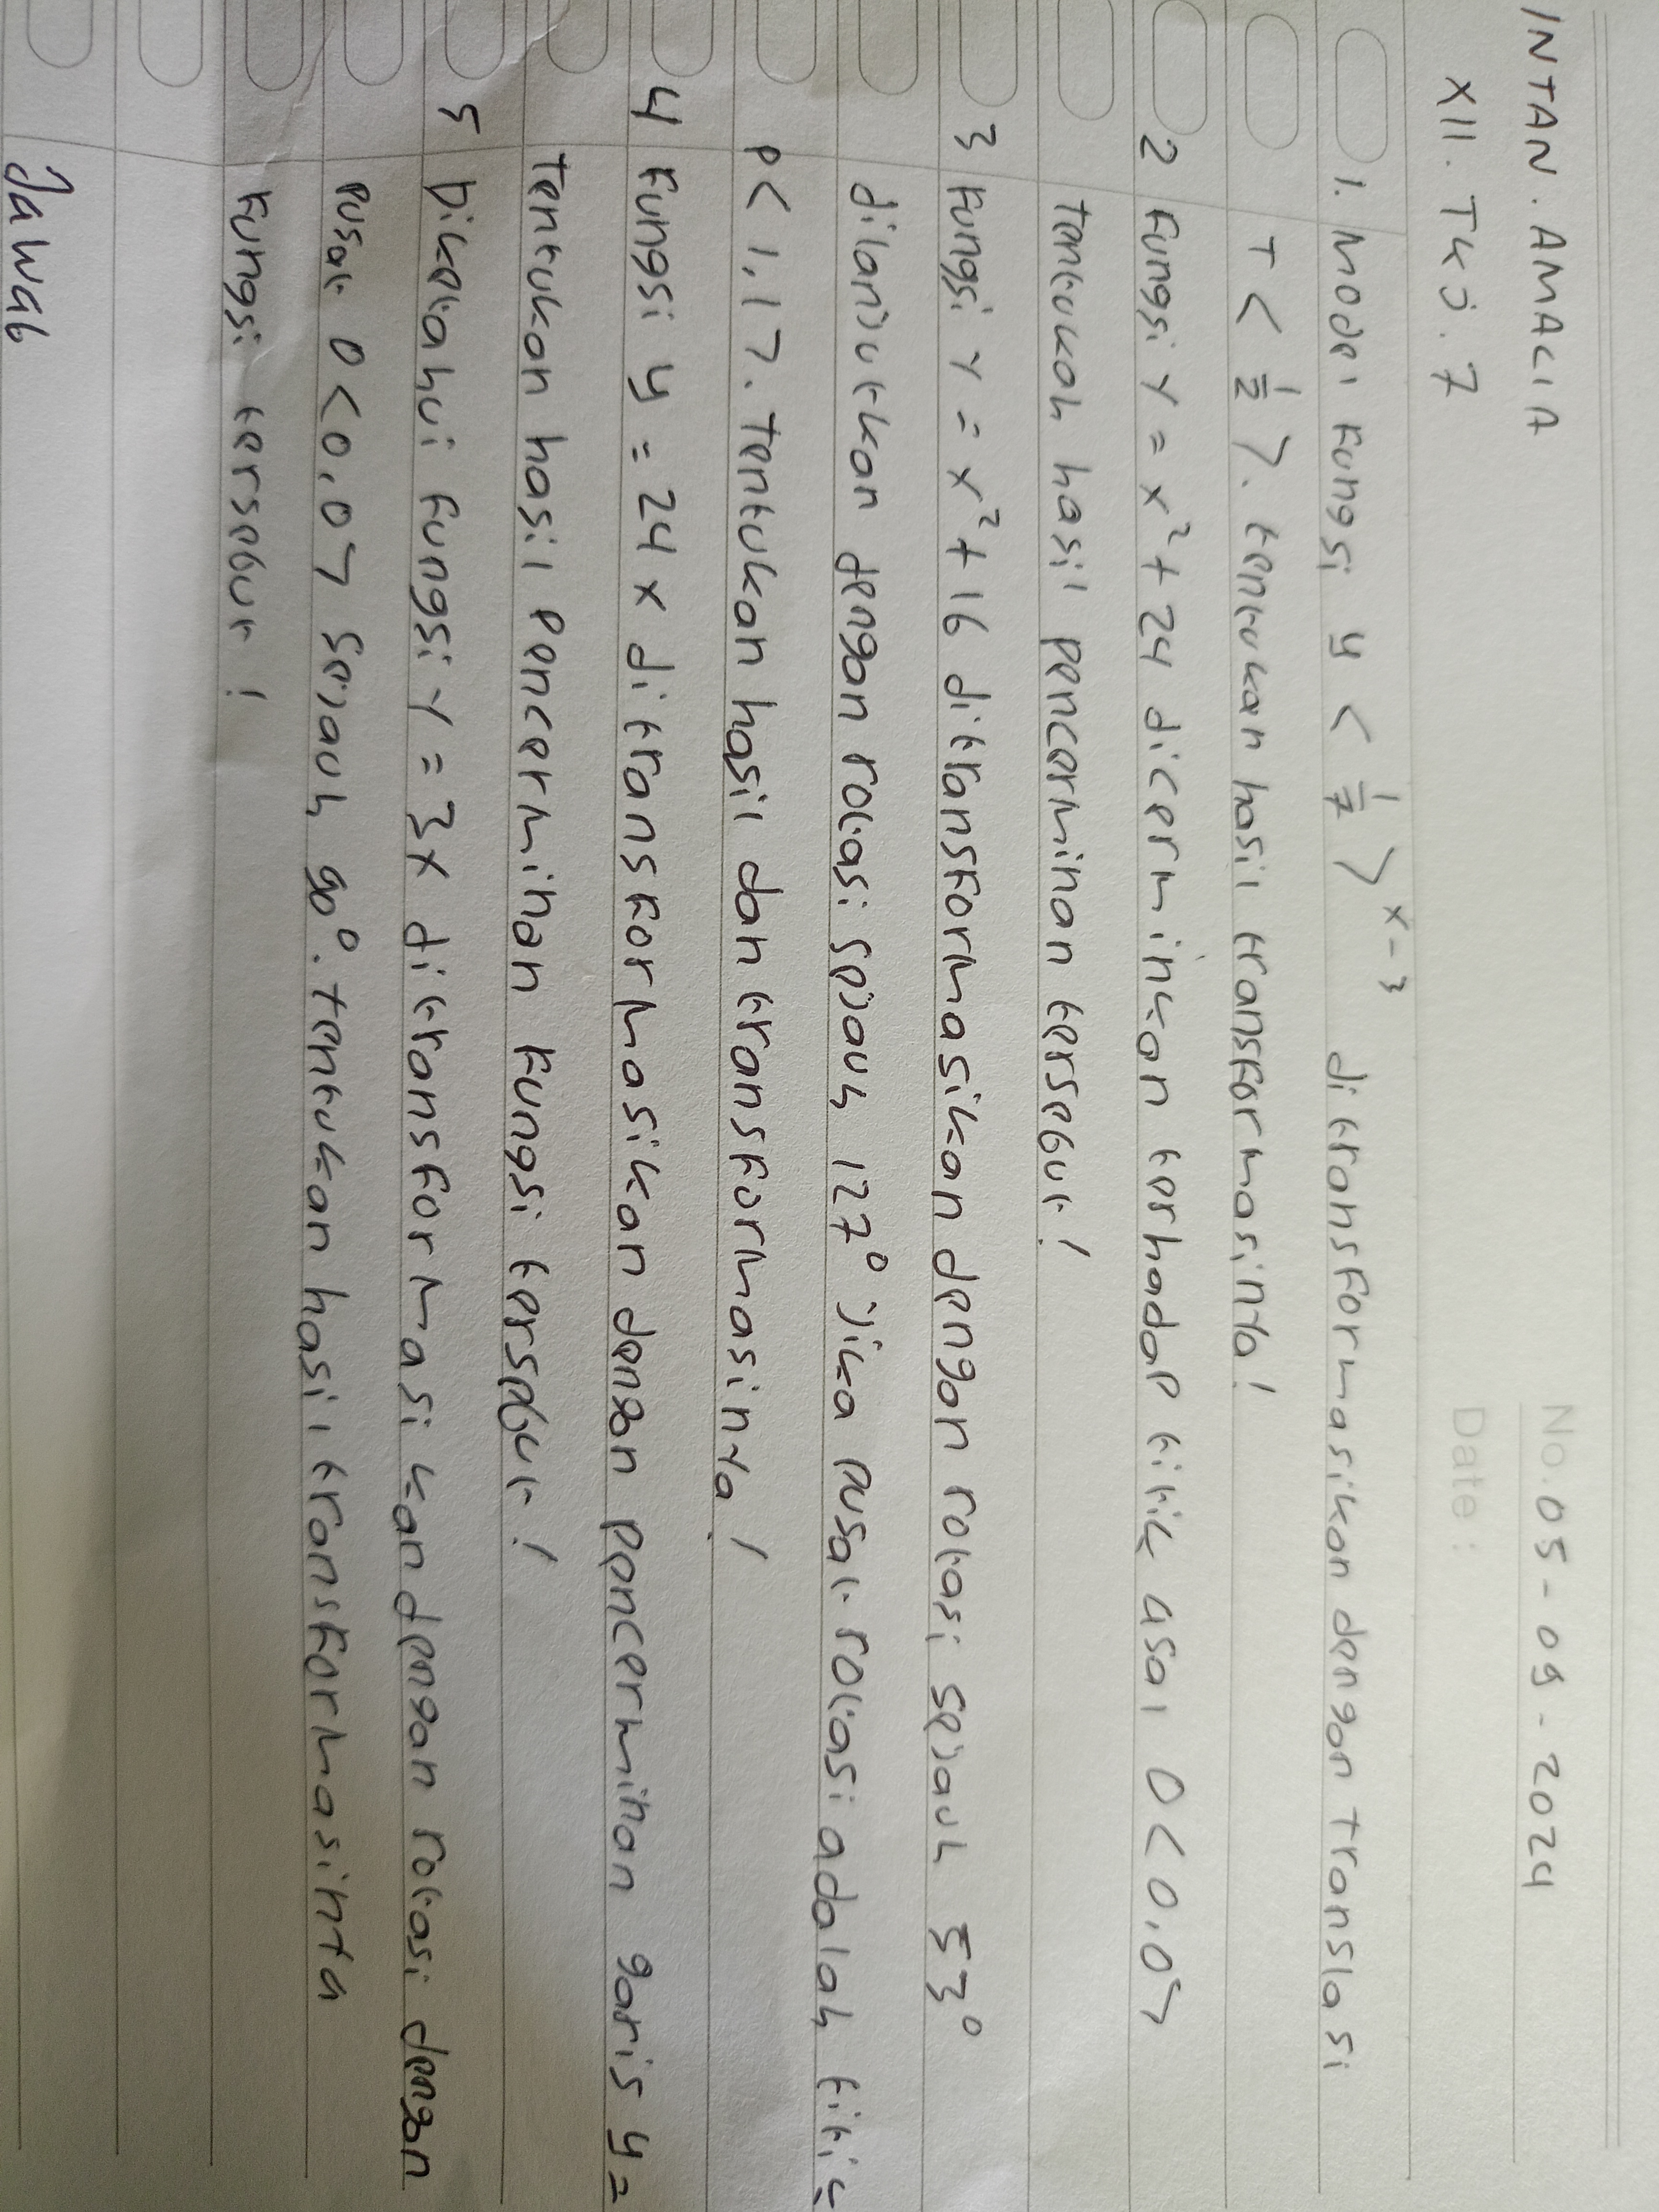 No. 05-09-2024
INTAN. AMALIA
Date :
XII. TKJ. 7
1. Model Fungsi y < 1/7 >^x-3 ditransformasikan dengan translasi
T < 1/2 >. tentukan hasil transformasinya!
2 Fungsi Y = x² + 24 dicerminkan terhadap titik asal O < 0,0>
tentukah hasil pencerminan tersebut!
3 Fungsi Y = x² + 16 ditransformasikan dengan rotasi sejauh 53°
dilanjutkan dengan rotasi sejauh 127° jika pusat rotasi adalah titik
P < 1,1 >. Tentukan hasil dan transformasinya!
4 Fungsi y = 24 x ditransformasikan dengan pencerminan garis y =
Tentukan hasil pencerminan Fungsi tersebut!
5 Diketahui Fungsi Y = 3x ditransformasikan dengan rotasi dengan
pusat O < 0,0 > sejauh 90°. tentukan hasil transformasinya
Fungsi tersebut!
Jawab